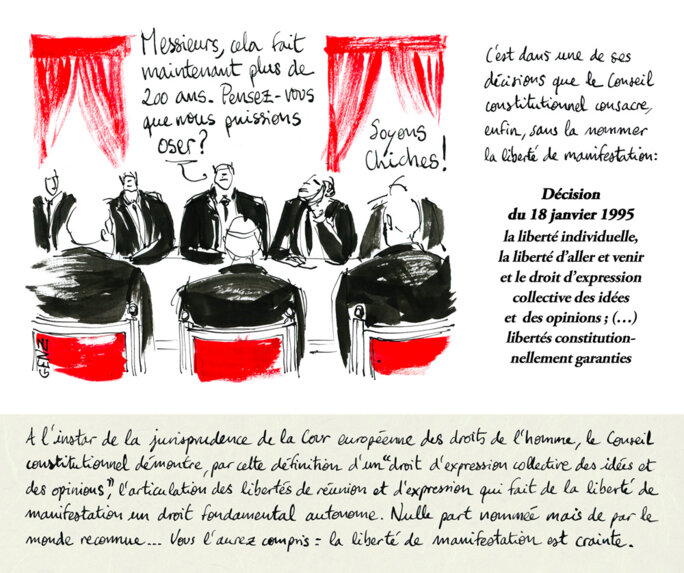 Messieurs, cela fait
maintenant plus de
200 ans. Pensez-vous
que nous puissions
oser?
Soyons
Chiches!
GENZ
C'est dans une de ses
décisions que le Conseil
constitutionnel consacre,
enfin, sans la nommer
la liberté de manifestation:
Décision
du 18 janvier 1995
la liberté individuelle,
la liberté d'aller et venir
et le droit d'expression
collective des idées
et des opinions ; (…)
libertés constitution-
nellement garanties
A l'instar de la jurisprudence de la Cour européenne des droits de l'homme, le Conseil
constitutionnel démontre, par cette définition d'un "droit d'expression collective des idées et
des opinions", l'articulation des libertés de réunion et d'expression qui fait de la liberté de
manifestation un droit fondamental autonome. Nulle part nommée mais de par le
monde reconnue... Vous l'aurez compris : la liberté de manifestation est crainte.